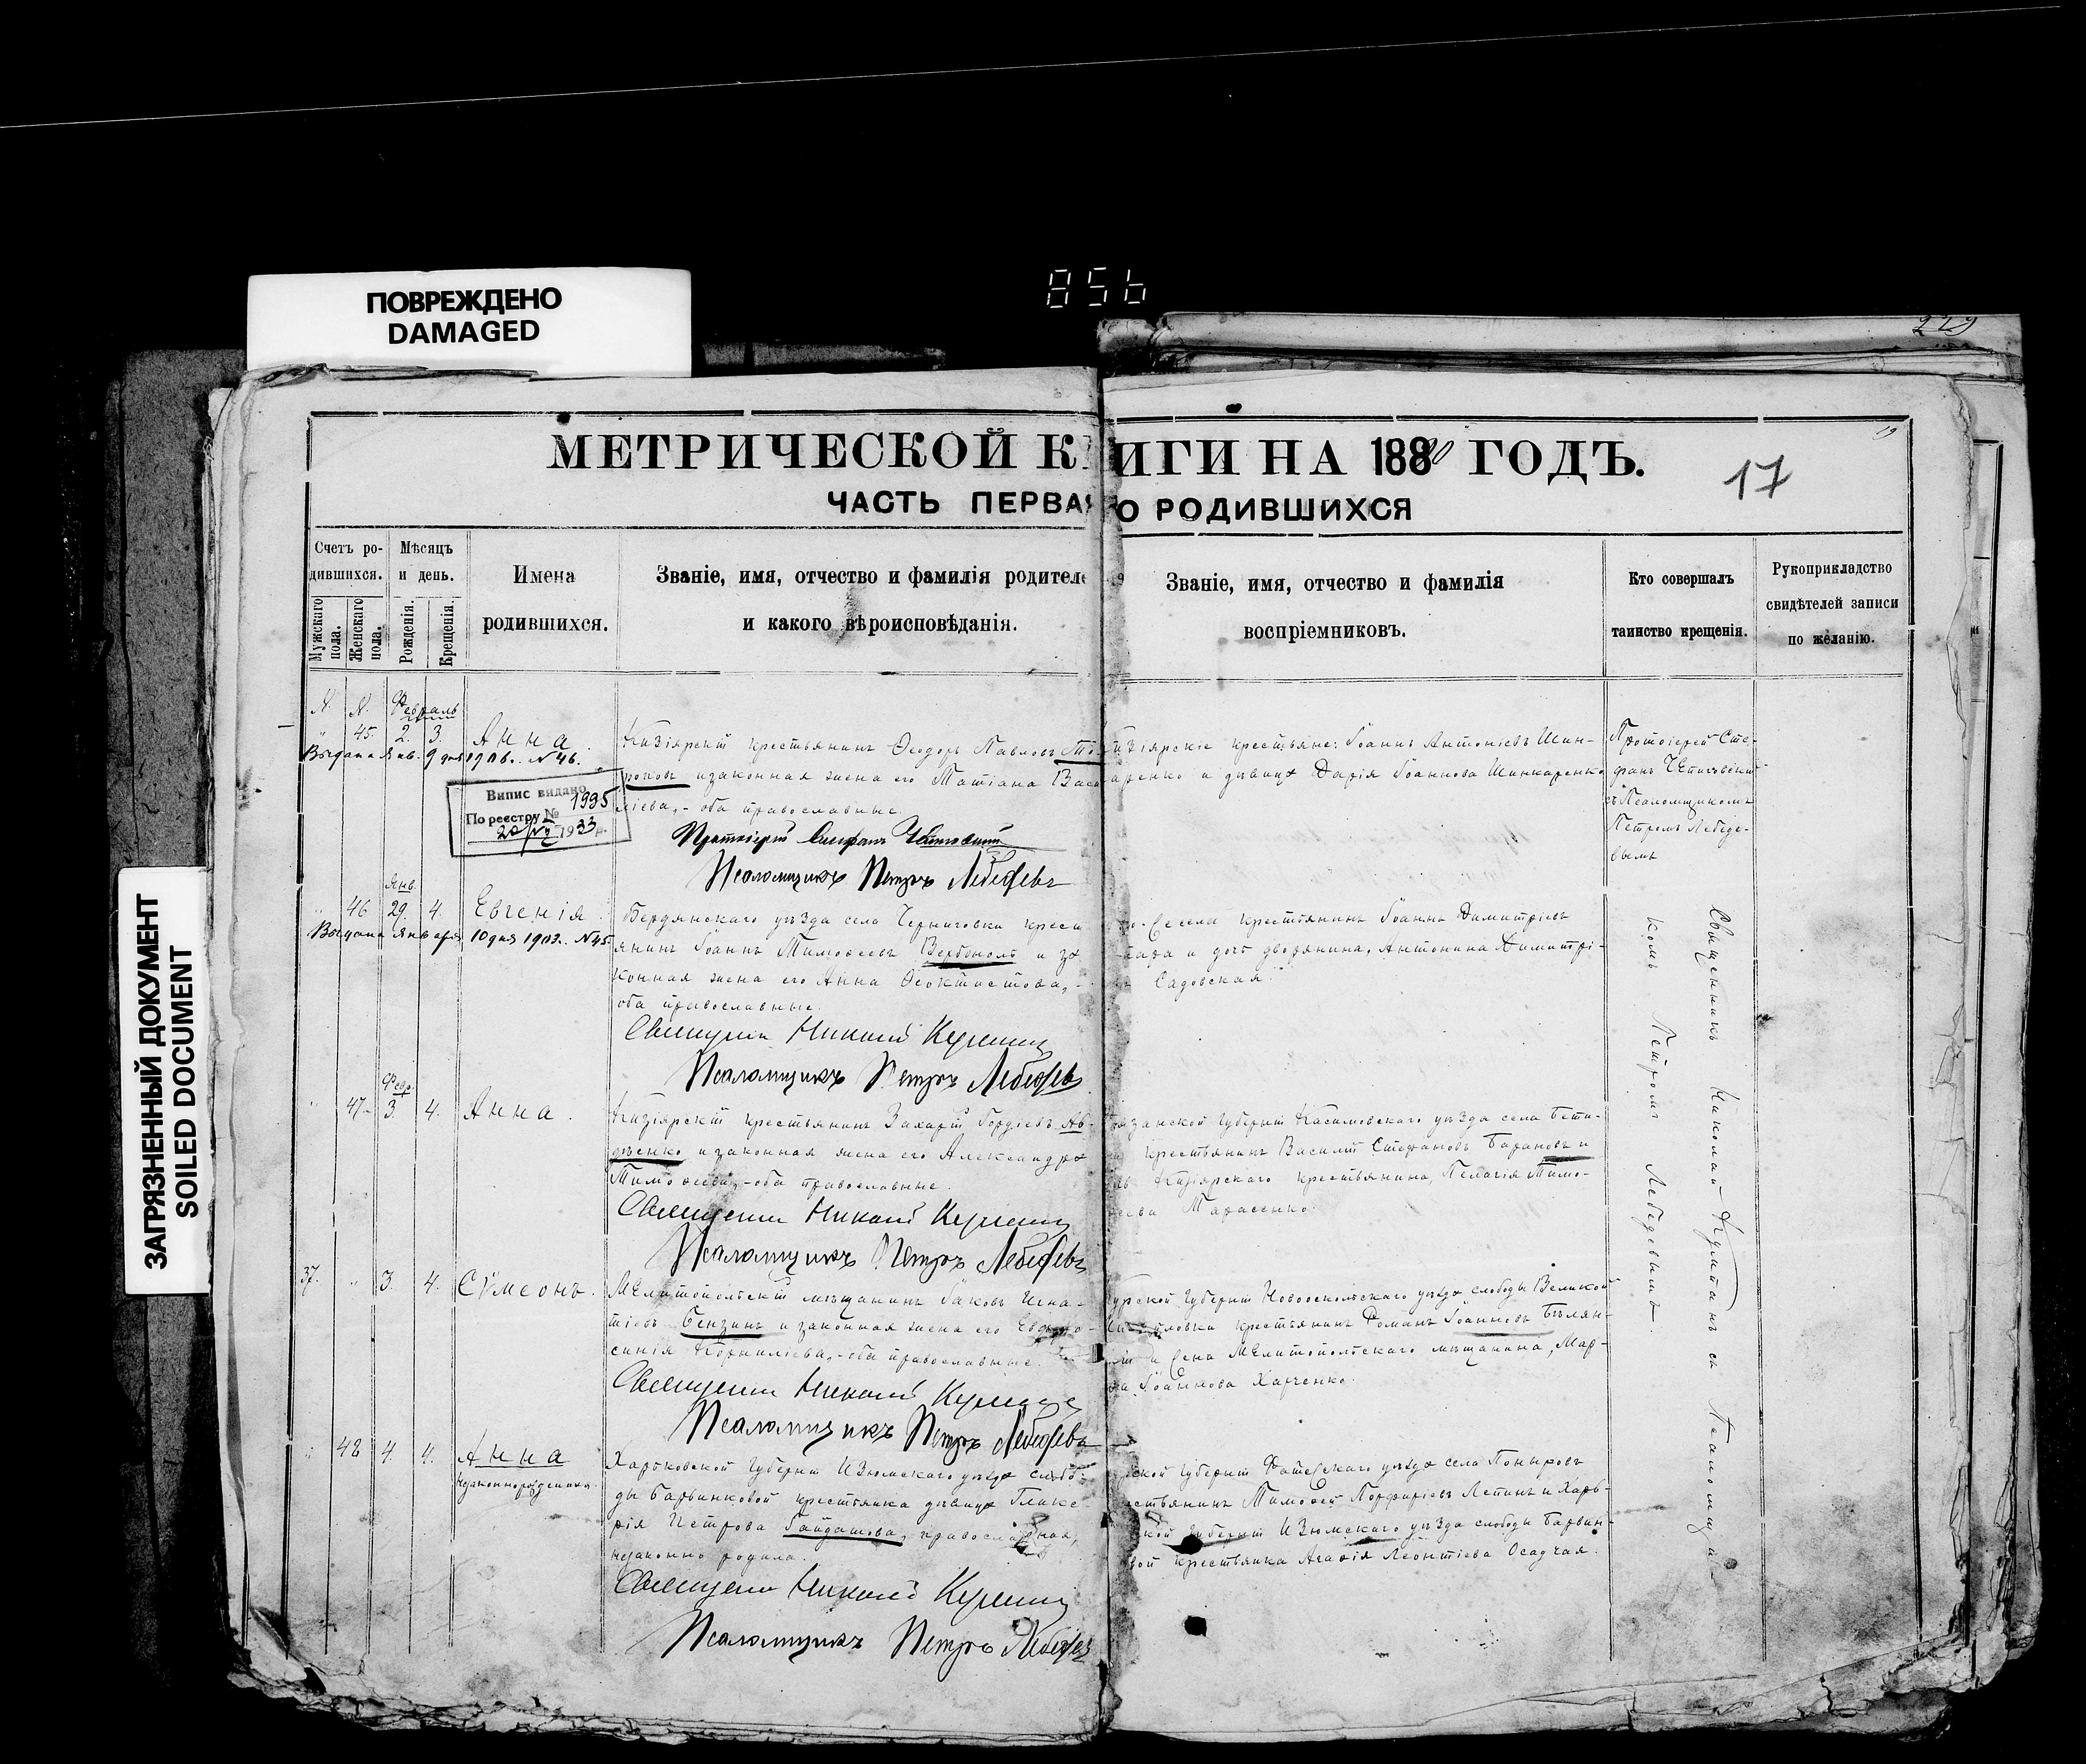 ПОВРЕЖДЕНО
DAMAGED
856
229
ЗАГРЯЗНЕННЫЙ ДОКУМЕНТ
SOILED DOCUMENT
МЕТРИЧЕСКОЙ К ИГИ НА 18890 ГОДЪ.
17
ЧАСТЬ ПЕРВАЯ О РОДИВШИХСЯ
Счетъ ро-
дившихся.
Мужскаго
пола.
Женскаго
пола.
Мѣсяцъ
и день.
Рожденія.
Крещенія.
Имена
родившихся.
Званіе, имя, отчество и фамилія родителе
и какого вѣроисповѣданія.
Званіе, имя, отчество и фамилія
воспріемниковъ.
Кто совершалъ
таинство крещенія.
Рукоприкладство
свидѣтелей записи
по желанію.
N. N. Февраль
45. 2. 3. Анна
Выдана Янв. 9 дня 1908. N 46.
Випис видано
По реестру № 1995
1933 г.
Кизіярскій крестьянинъ Ѳеодоръ Павловъ
роковъ и законная жена его Татіана Васи
ліева, - оба православные
Протоіерей Стефанъ
Псаломщикъ Петръ Лебедевъ
изіярскіе крестьяне: Іоаннъ Антоніевъ Шин-
каренко и дѣвица Дарія Іоаннова Шинкаренко
Протоіерей Сте-
фанъ
съ Псаломщикомъ
Петромъ Лебеде-
вымъ
Янв.
46 29. 4. Евгенія
Выдана января 10 дня 1903. N 45.
Бердянскаго уѣзда села Черниговки крест
янинъ Іоаннъ Тимоѳеевъ Вербоноль и за
конная жена его Анна Ѳеоктистова, -
оба православные.
Священникъ Николай
Псаломщикъ Петръ Лебедевъ
крестьянинъ Іоаннъ Димитріевъ
и дочь дворянина, Антонина Димитрі-
Садовская
Февр.
47 3. 4. Анна.
Кизіярскій крестьянинъ Захарій Гордіевъ Ав-
дѣенко и законная жена его Александра
Тимоѳеева, - оба православные.
Священникъ Николай
Псаломщикъ Петръ Лебедевъ
занской Губерніи Касимовскаго уѣзда села Бети-
крестьянинъ Василій Стефановъ Барановъ и
Кизіярскаго крестьянина, Пелагія Тимо-
ѳеева Тарасенко
37. 3. 4. Сѵмеонъ.
Мелитопольскій мѣщанинъ Іаковъ Игна-
тіевъ Бензинъ и законная жена его Евфро-
синія Корниліева, - оба православные.
Священникъ Николай
Псаломщикъ Петръ Лебедевъ
урской Губерніи Новооскольскаго уѣзда слободы Великой
Михайловки крестьянинъ Романъ Іоанновъ Бѣлян-
и жена Мелитопольскаго мѣщанина, Мар-
ѳа Іоаннова Харченко.
48 4. 4. Анна
незаконнорожденная.
Харьковской Губерніи Изюмскаго уѣзда слобо-
ды Барвинковой крестьянка дѣвица Глике
рія Петрова Гайдашова, православная,
незаконно родила.
Священникъ Николай
Псаломщикъ Петръ Лебедевъ
ской Губерніи Фатежскаго уѣзда села Поныровъ
естьянинъ Тимоѳей Порфиріевъ Лепинъ и Харь-
ской Губерніи Изюмскаго уѣзда слободы Барвин-
вой крестьянка Агаѳія Леонтіева Осадчая.
Священникъ Николай съ Псаломщи-
комъ Петромъ Лебедевымъ.